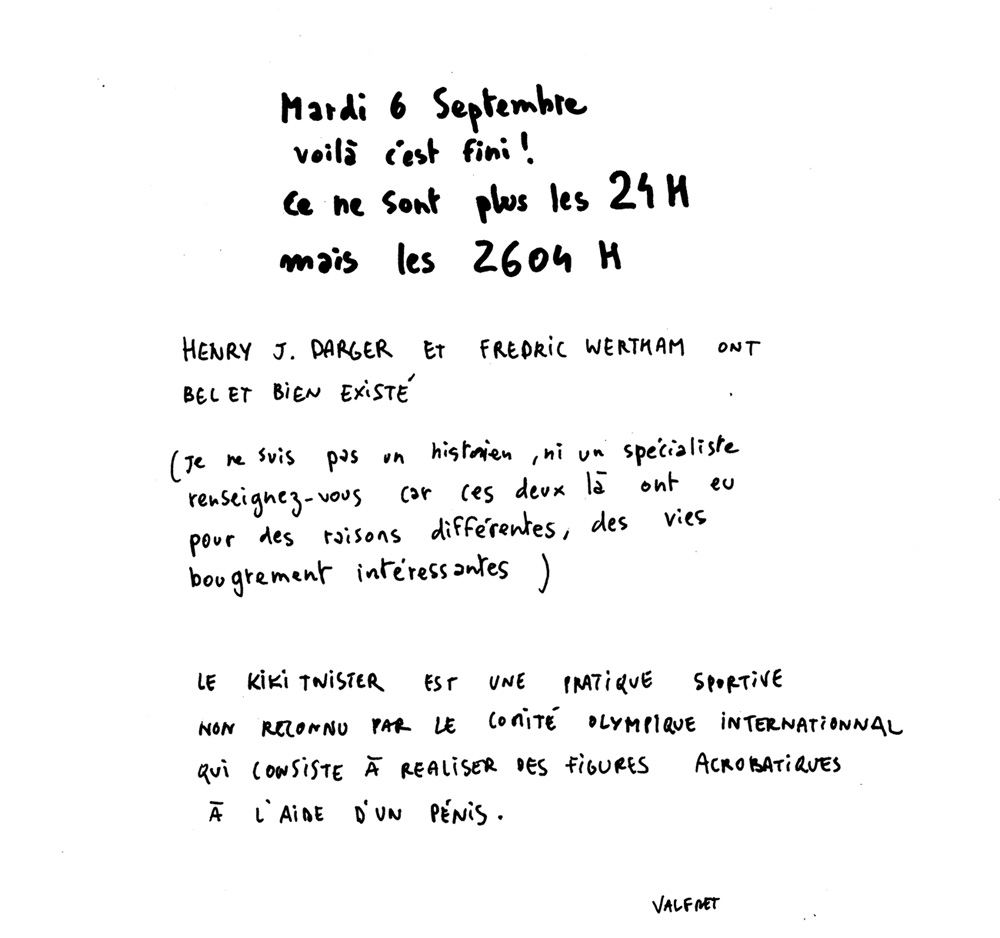 Mardi 6 Septembre
voilà c'est fini !
Ce ne sont plus les 24H
mais les 2604 H
HENRY J. DARGER ET FREDRIC WERTHAM ONT
BEL ET BIEN EXISTÉ
(Je ne suis pas un historien, ni un spécialiste
renseignez-vous car ces deux là ont eu
pour des raisons différentes, des vies
bougrement intéressantes )
LE KIKI TWISTER EST UNE PRATIQUE SPORTIVE
NON RECONNU PAR LE COMITÉ OLYMPIQUE INTERNATIONNAL
QUI CONSISTE À REALISER DES FIGURES ACROBATIQUES
À L'AIDE D'UN PÉNIS.
VALFRET